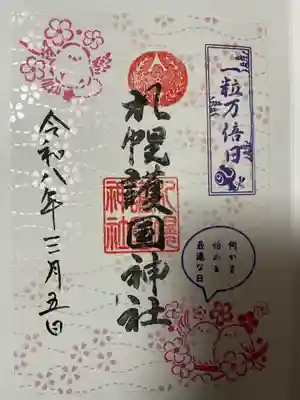 一粒万倍日
何かを
始める
最適な日
札幌護国神社
令和八年三月五日